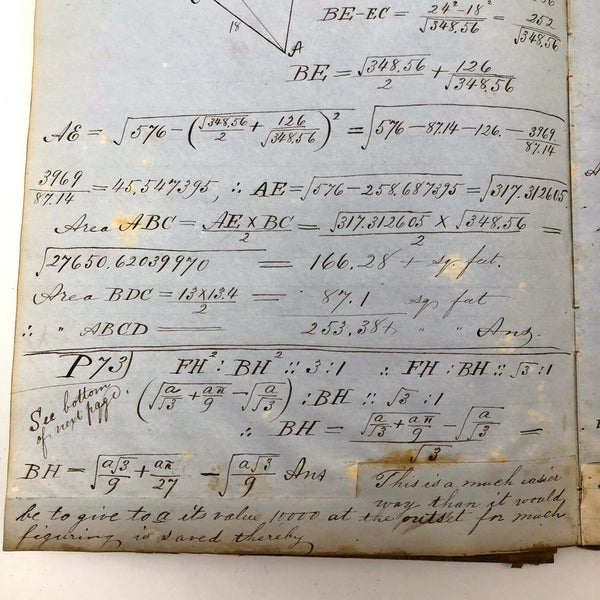 18
A
BE-EC = 24²-18² / √348.56 = 252 / √348.56
BE = √348.56 / 2 + 126 / √348.56
AE = √576 - (√348.56 / 2 + 126 / √348.56)² = √576 - 87.14 - 126. - 3969 / 87.14
3969 / 87.14 = 45.547395, ∴ AE = √576 - 258.687395 = √317.312605
Area ABC = AE × BC / 2 = √317.312605 × √348.56 / 2 =
√27650.62039970 = 166.28+ sq. feet.
Area BDC = 13×13.4 / 2 = 87.1 sq feet
∴ " ABCD = 253.38+ " " Ans.
P73) FH² : BH² :: 3 : 1 ∴ FH : BH :: √3 : 1
See bottom
of next page.
(√a/√3 + aπ/9 - √a/√3) : BH :: √3 : 1
∴ BH = √a/√3 + aπ/9 - √a/√3 / √3 =
BH = √a√3/9 + aπ/27 - √a√3/9 Ans
This is a much easier
way than it would
be to give to a its value, 10000 at the outset for much
figuring is saved thereby